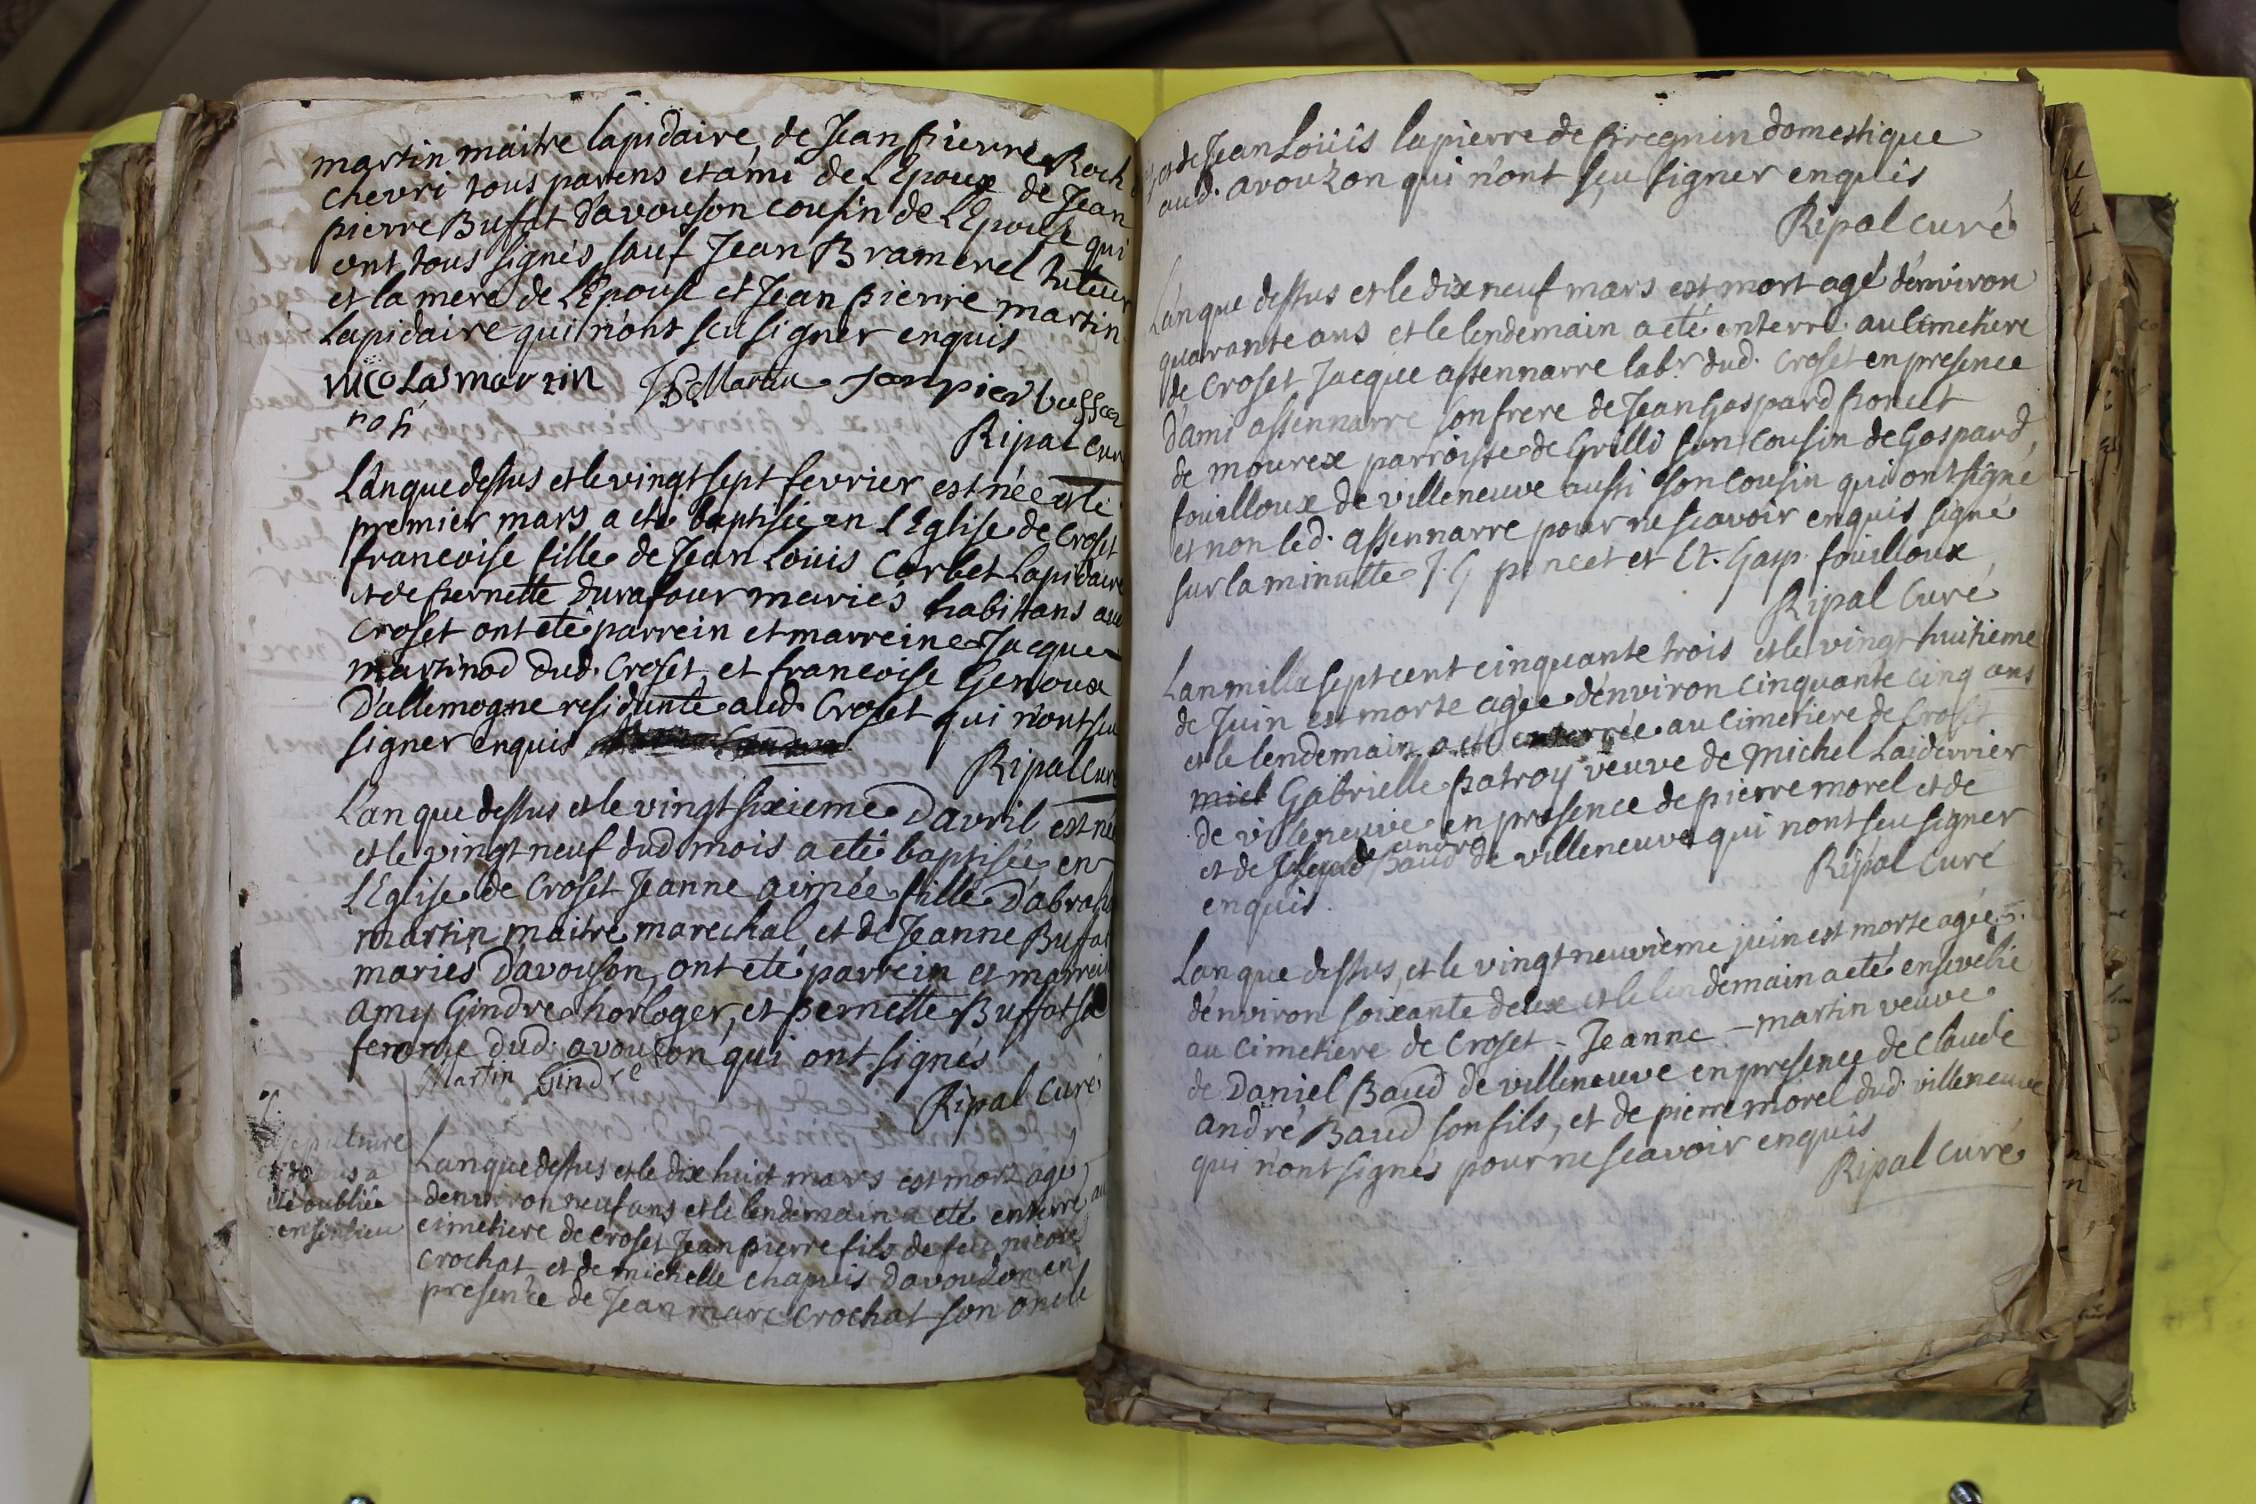 martin maitre lapidaire, de Jean pierre Roch
chevri tous parens et ami de L'Epoux de Jean
pierre Buffat d'avouson cousin de L'Epouse qui
ont tous signés sauf Jean Bramerel tuteur
et la mere de L'Epouse et Jean pierre martin
Lapidaire qui n'ont sçu signer enquis
nicolas martin Martin Jean pier buffat
Ripal cur
L'an que dessus et le vingt sept fevrier est née et le
premier mars a eté baptisée en L'Eglise de Croset
francoise fille de Jean Loüis Corbet Lapidaire
et de pernette durafour mariés habitans au
Croset ont eté parrein et marreine Jacque
martinod dud. Croset, et francoise Genoux
D'allemogne residante aud. Croset qui n'ont sçu
signer enquis
Ripal cure
L'an que dessus et le vingt sixieme D'avril est né
et le vingt neuf dud mois a eté baptisée en
L'Eglise de Croset Jeanne aimée fille d'abrah
martin maitre marechal, et de Jeanne Buffat
mariés D'avouson, ont eté parrein et marrein
amy Gindre horloger, et pernette Buffat sa
femme dud. avouzon qui ont signés
Martin Gindre
Ripal Curé
sepulture
oubliée
en son lieu
L'an que dessus et le dix huit mars est mort agé
d'environ neuf ans et le lendemain a eté enterré au
cimetiere de Croset Jean pierre fils de feu
Crochat et de michelle chapuis d'avouzon en
presence de Jean marc Crochat son oncle
et de Jean Loüis lapierre de pregnin domestique
aud. avouzon qui n'ont sçu signer enquis
Ripal curé
L'an que dessus et le dix neuf mars est mort agé d'environ
quarante ans et le lendemain a eté enterré au Cimetiere
de Croset Jacque assennarre labr dud. Croset en presence
d'ami assennarre son frere de Jean Gaspard poncet
de mourex parroisse de Grilli son Cousin de Gaspard
fouilloux de villeneuve aussi son Cousin qui ont signé
et non led. assennarre pour ne scavoir enquis signé
sur la minutte J. G poncet et Gasp. fouilloux
Ripal Curé
L'an mille sept cent cinquante trois et le vingt huitieme
de Juin est morte agée d'environ Cinquante cinq ans
et le lendemain a eté enterrée au Cimetiere de Croset
miel Gabrielle patroy veuve de michel Laiderrier
de villeneuve en presence de pierre morel et de
andre
et de Baud de villeneuve qui n'ont sçu signer
enquis. Ripal Curé
L'an que dessus, et le vingt neuvieme juin est morte agée
d'environ soixante deux et le lendemain a eté ensevelie
au Cimetiere de Croset - Jeanne - martin veuve
de Daniel Baud de villeneuve en presence de Claude
andré Baud son fils, et de pierre morel dud. villeneuve
qui n'ont signés pour ne scavoir enquis
Ripal Curé